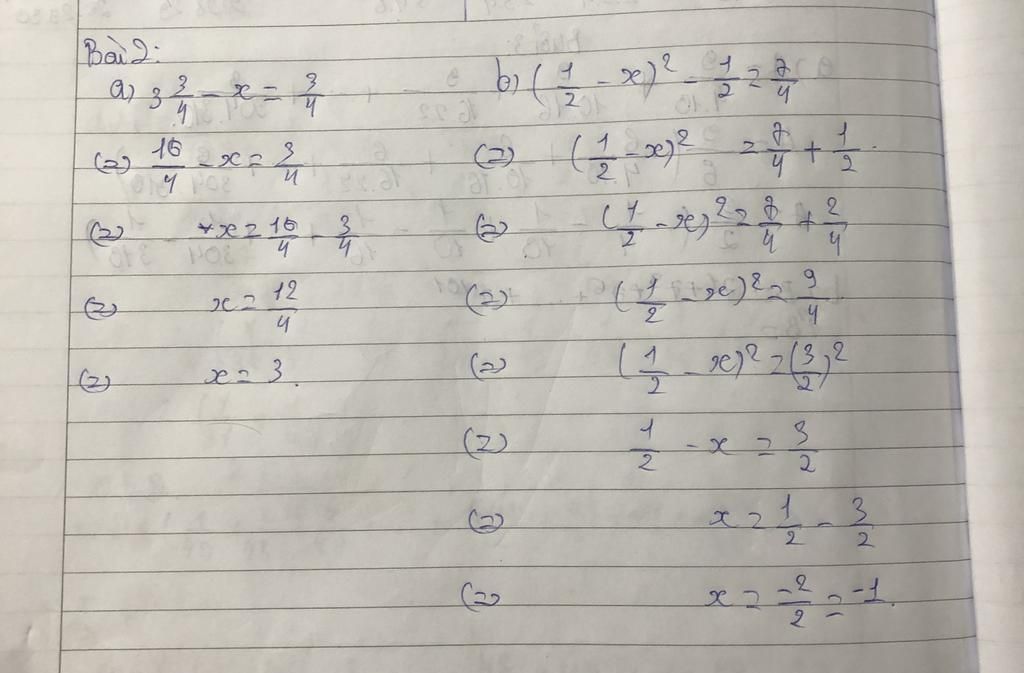 Bài 2:
a) 3 3/4 - x = 3/4
(=) 16/4 - x = 3/4
(=) x = 16/4 - 3/4
(=) x = 12/4
(=) x = 3.
b) (1/2 - x)² - 1/2 = 7/4
(=) (1/2 - x)² = 7/4 + 1/2.
(=) (1/2 - x)² = 7/4 + 2/4
(=) (1/2 - x)² = 9/4
(=) (1/2 - x)² = (3/2)²
(=) 1/2 - x = 3/2
(=) x = 1/2 - 3/2
(=) x = -2/2 = -1.